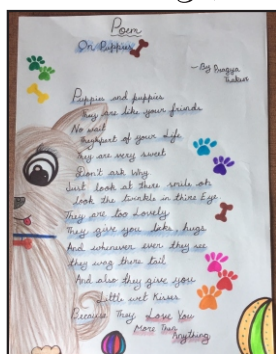 Poem
On Puppies
- By Pragya
Puppies and puppies
They are like your friends
No wait
They part of your life
They are very sweet
Don't ask why
Just look at there smile oh
Look the twinkle in thire Eye
They are too Lovely
They give you like, hugs
And whenever even they see
they wag there tail
And also they give you
Little wet Kisses
Because They Love You
More Than
Anything